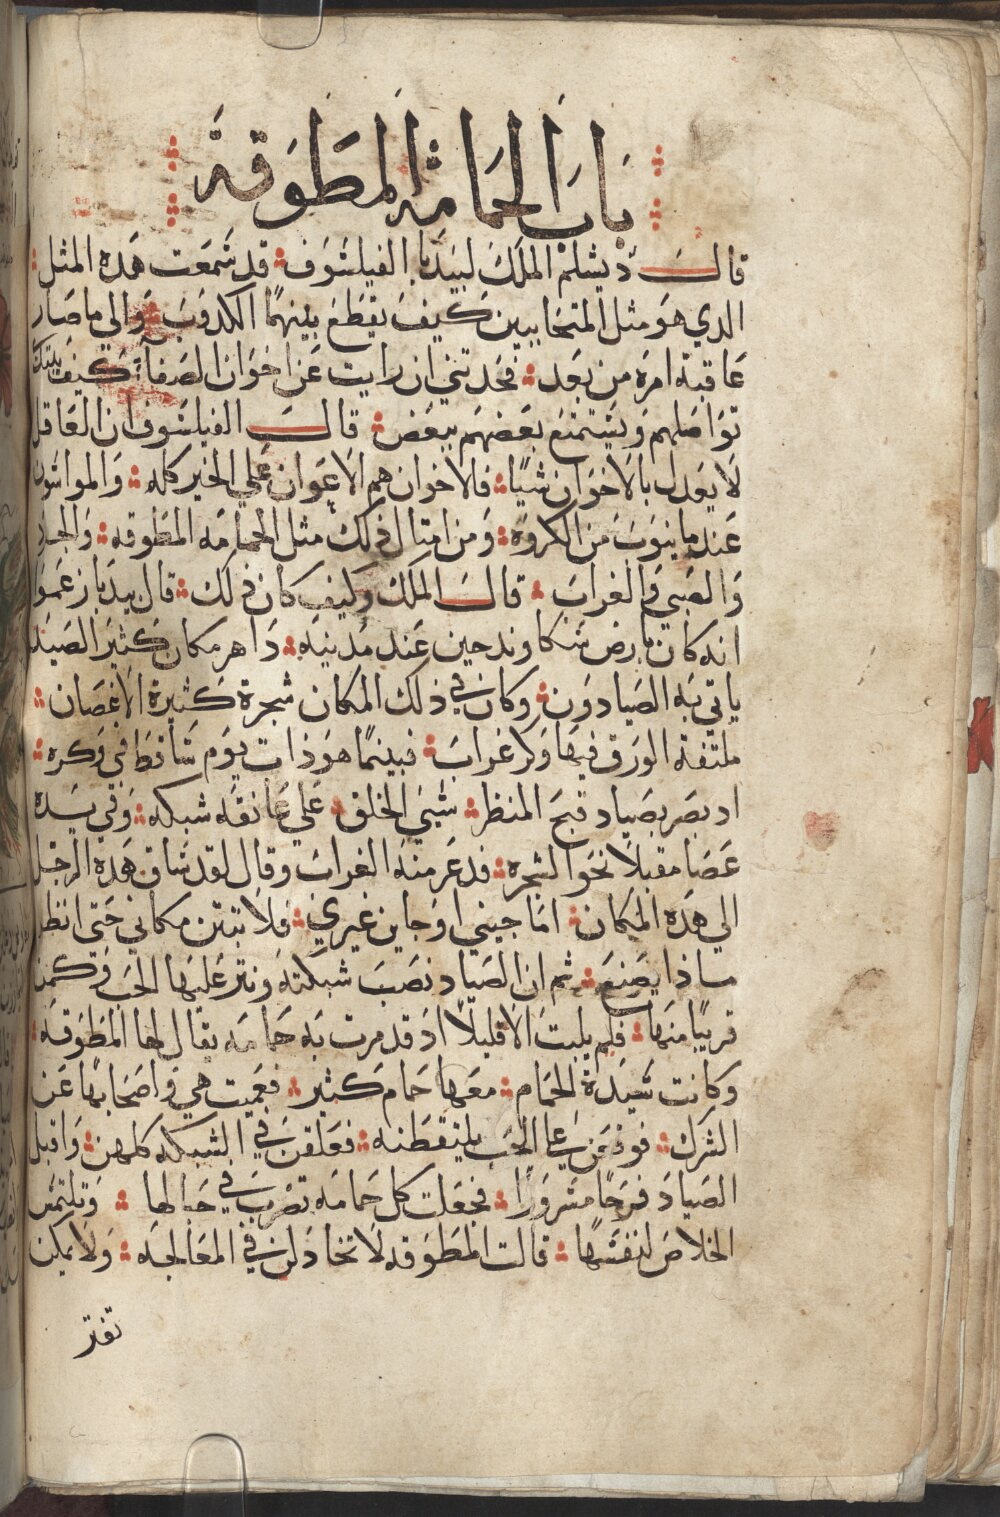 باب الحمامة المطوقة
قال دبشلم الملك لبيدبا الفيلسوف قد سمعت هذه المثل
الدي هو مثل المتحابيين كيف يقطع بينهما الكدوب والي ما صار
عاقبة امره من بعد فحدثني ان رايت عن اخوان الصفآ كيف يبتدى
تواصلهم ويستمتع بعضهم ببعض قال الفيلسوف ان العاقل
لا يعدل بالاخوان شيًا فالاخوان هم الاعوان علي الخير كله والمواسون
عند ما ينوب من المكروه ومن امتال ذلك مثل الحمامه المطوقه والجرد
والضبي والغراب قال الملك وكيف كان ذلك قال بيدبا زعموا
انه كان بارض سكاوندجين عند مدنيه داهر مكان كثير الصيد
ياتي به الصيادون وكان في ذلك المكان شجرة كثيرة الاغصان
ملتفة الورق فيها وكر غراب فبينما هو ذات يوم ساقط في وكره
اد بصر بصياد قبح المنظر سيي الخلق علي عاتقه شبكه وفي يده
عصا مقبلا نحو الشجره فدعر منه الغراب وقال لقد ساق هده الرجل
الي هده المكان اما جيني او جاين غيري فلاثبتن مكاني حتى انظر
ماذا يصنع ثم ان الصياد نصب شبكته ونتر عليها الحب وكمن
قريبًا منها فلم يلبت الا قليلا اد قد مرت به حمامه يقال لها المطوقه
وكانت سيدة الحمام معها حمام كثير فعميت هي واصحابها عن
الشرك فوقعن علي الحب يلتقطنه فعلقن في الشبكه كلهن واقبل
الصياد فرحًا مسرورًا فجعلت كل حمامه تضرب في حبالها وتلتمس
الخلاص لنفسها قالت المطوقه لا تخادلن في المعالجه ولا يكن